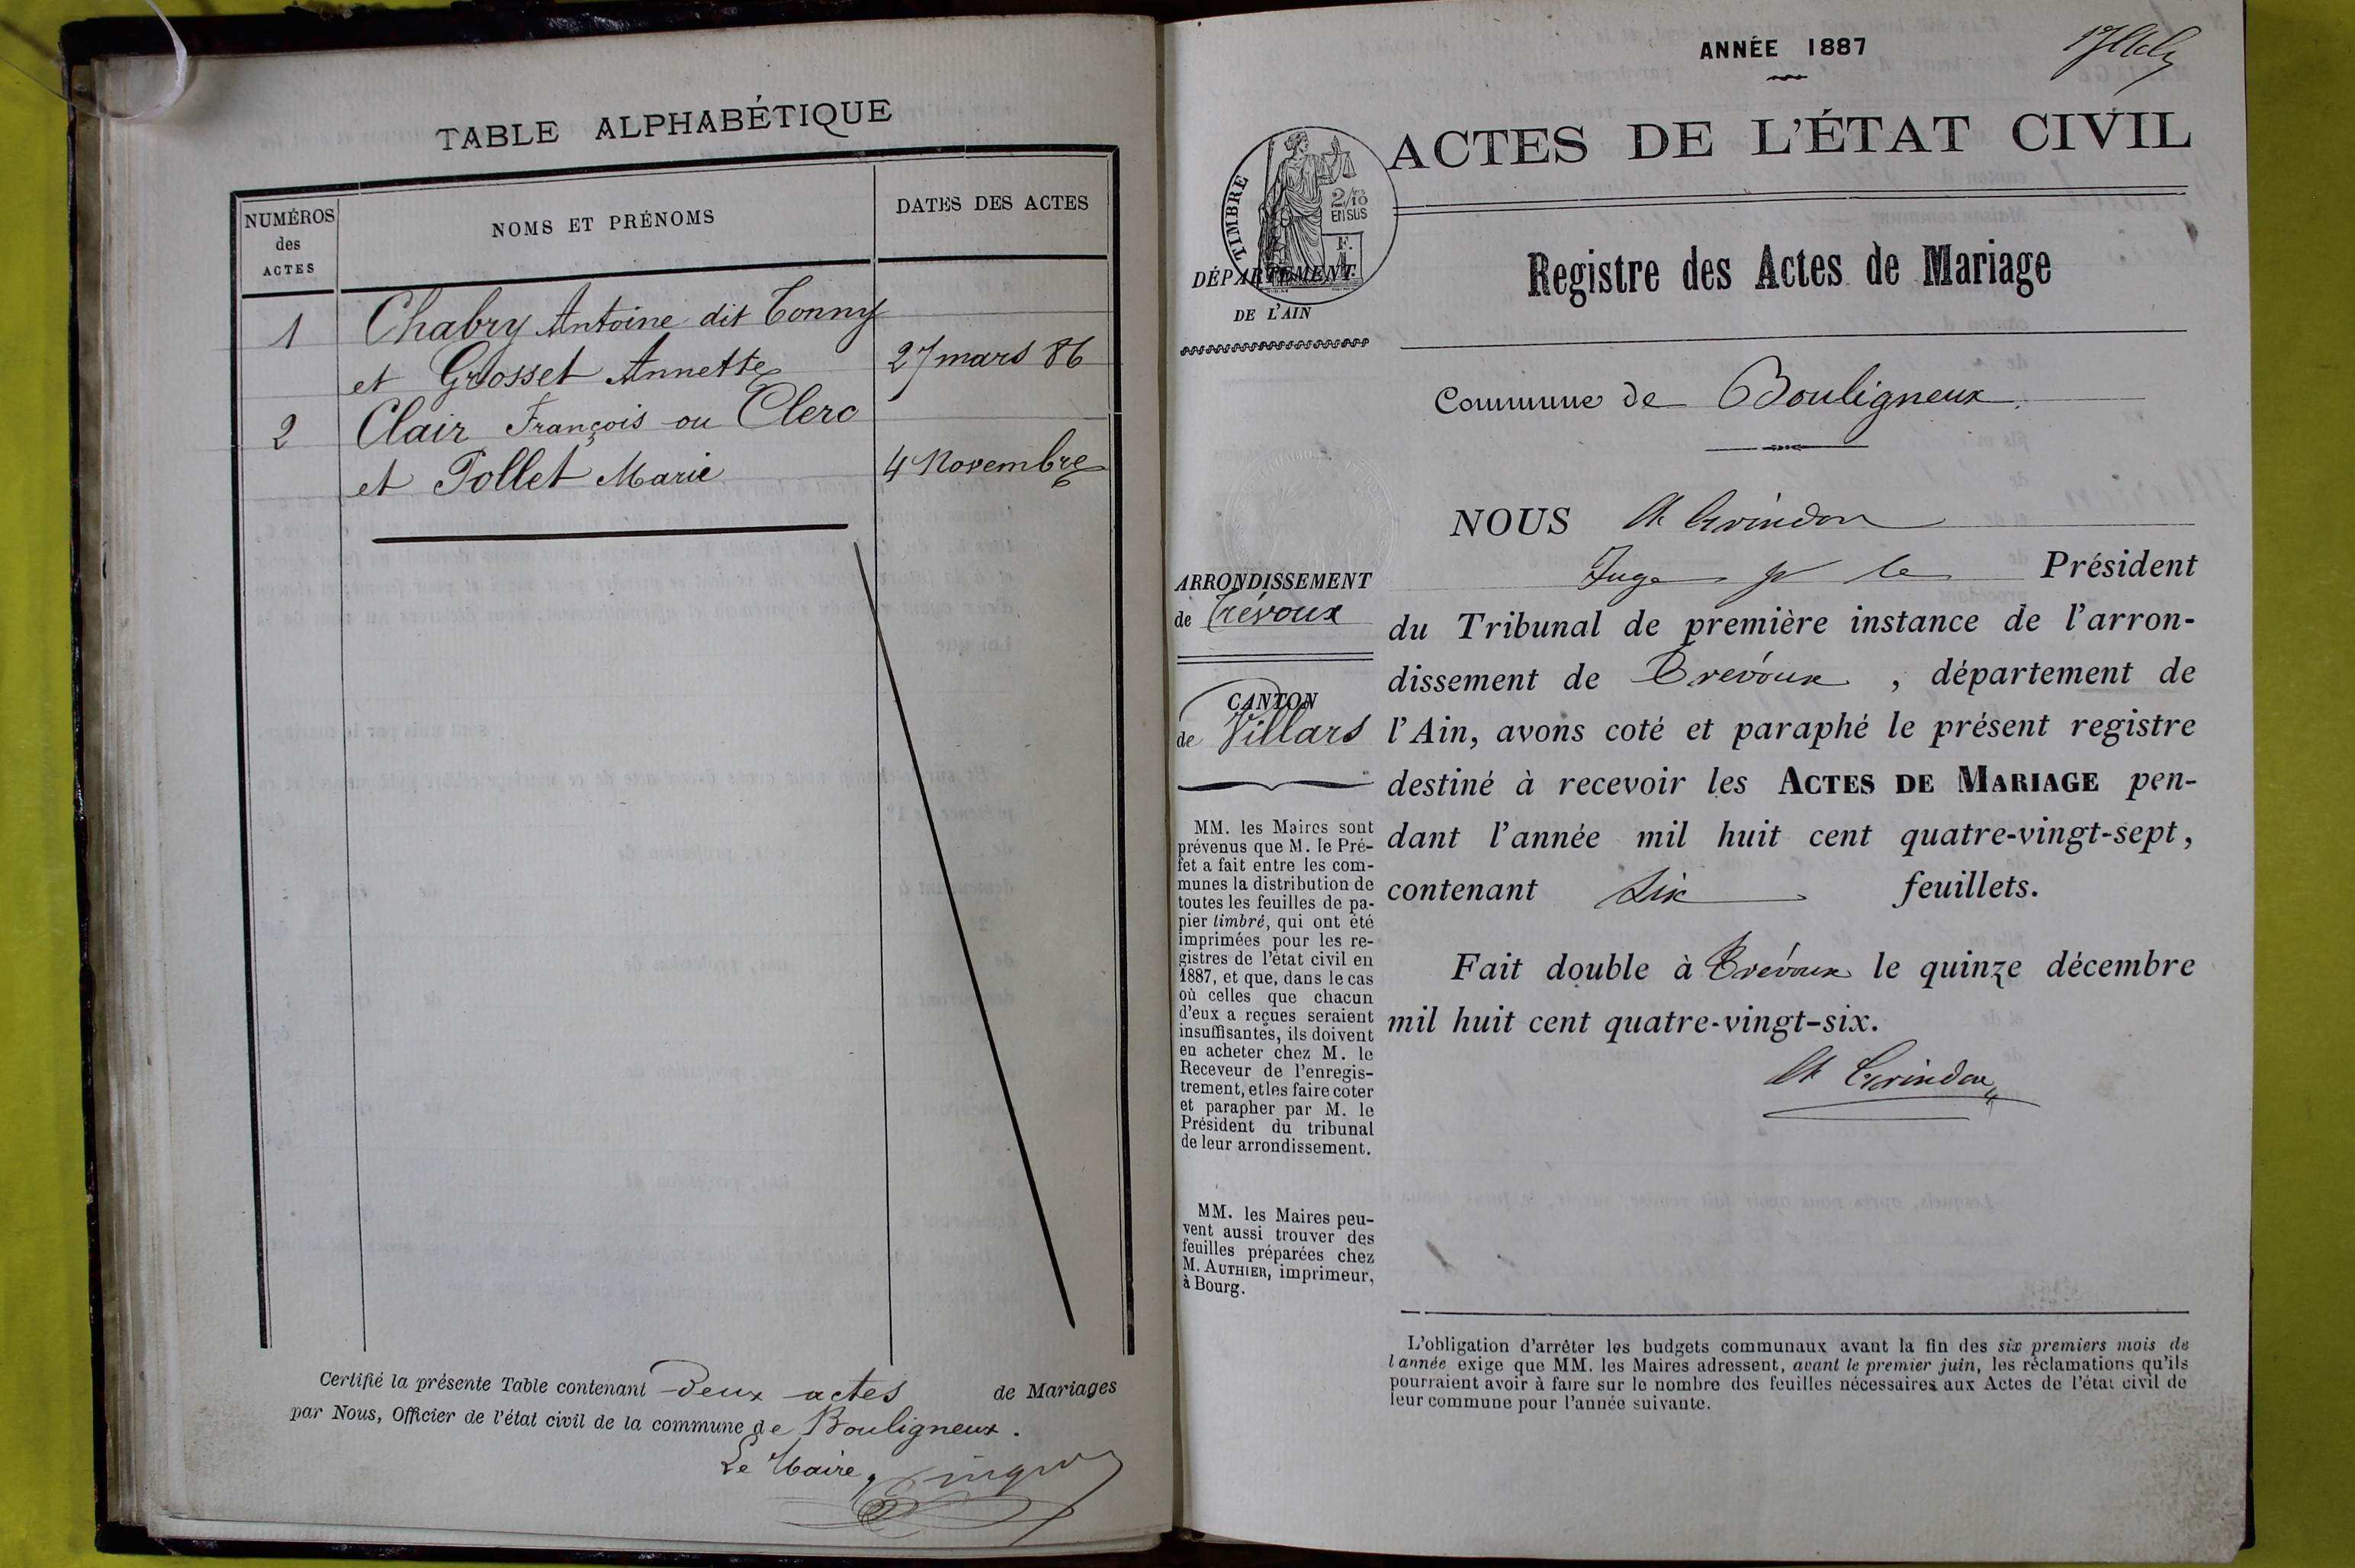 TABLE ALPHABÉTIQUE
NUMÉROS
des
ACTES
NOMS ET PRÉNOMS
DATES DES ACTES
1 Chabry Antoine dit Tonny
et Grosset Annette 27 mars 86
2 Clair François ou Clerc
et Pollet Marie 4 Novembre
Certifié la présente Table contenant deux actes de Mariages
par Nous, Officier de l'état civil de la commune de Bouligneux.
Le Maire,
ANNÉE 1887
ACTES DE L'ÉTAT CIVIL
TIMBRE
2/10
EN SUS
F.
DÉPARTEMENT
DE L'AIN
Registre des Actes de Mariage
Commune de Bouligneux.
ARRONDISSEMENT
de Trévoux
CANTON
de Villars
MM. les Maires sont
prévenus que M. le Pré-
fet a fait entre les com-
munes la distribution de
toutes les feuilles de pa-
pier timbré, qui ont été
imprimées pour les re-
gistres de l'état civil en
1887, et que, dans le cas
où celles que chacun
d'eux a reçues seraient
insuffisantes, ils doivent
en acheter chez M. le
Receveur de l'enregis-
trement, et les faire coter
et parapher par M. le
Président du tribunal
de leur arrondissement.
MM. les Maires peu-
vent aussi trouver des
feuilles préparées chez
M. AUTHIER, imprimeur,
à Bourg.
NOUS Ch Grindon
Juge pr le Président
du Tribunal de première instance de l'arron-
dissement de Trévoux, département de
l'Ain, avons coté et paraphé le présent registre
destiné à recevoir les ACTES DE MARIAGE pen-
dant l'année mil huit cent quatre-vingt-sept,
contenant Six feuillets.
Fait double à Trévoux le quinze décembre
mil huit cent quatre-vingt-six.
Ch Grindon
L'obligation d'arrêter les budgets communaux avant la fin des six premiers mois de
l'année exige que MM. les Maires adressent, avant le premier juin, les réclamations qu'ils
pourraient avoir à faire sur le nombre des feuilles nécessaires aux Actes de l'état civil de
leur commune pour l'année suivante.